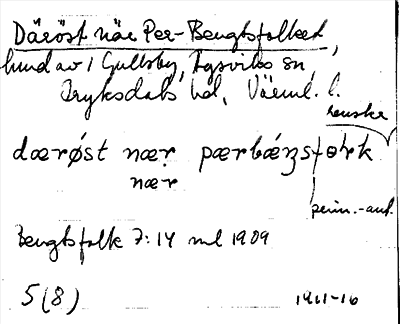 Däröst när Per-Bengtsfolket,
hund av i Gullsby, Lysviks sn,
Fryksdals hd, Värml. l.
dærøst nær pærbæŋsfoɫk
nær
penn.-ant.
Bengtsfolk 7:14 ml 1909
5(8)
1911-16